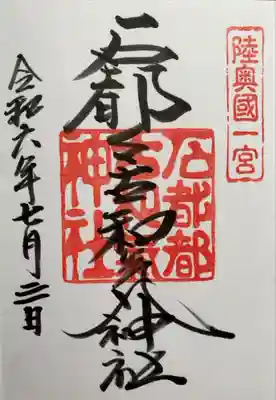 陸奥國一宮
石都々古和気神社
石都都
古和氣
神社
令和六年七月二日